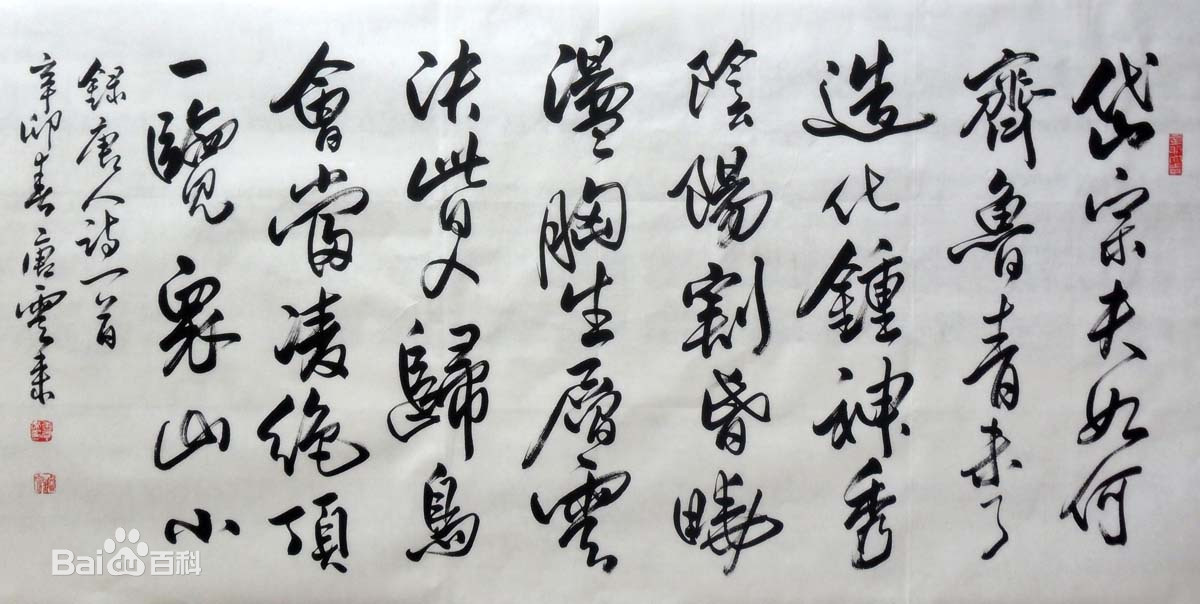 岱宗夫如何
齊魯青未了
造化鍾神秀
陰陽割昏曉
盪胸生層雲
決眥入歸鳥
會當凌絕頂
一覽眾山小
錄唐人詩一首
辛卯春唐雲來
Bai百科